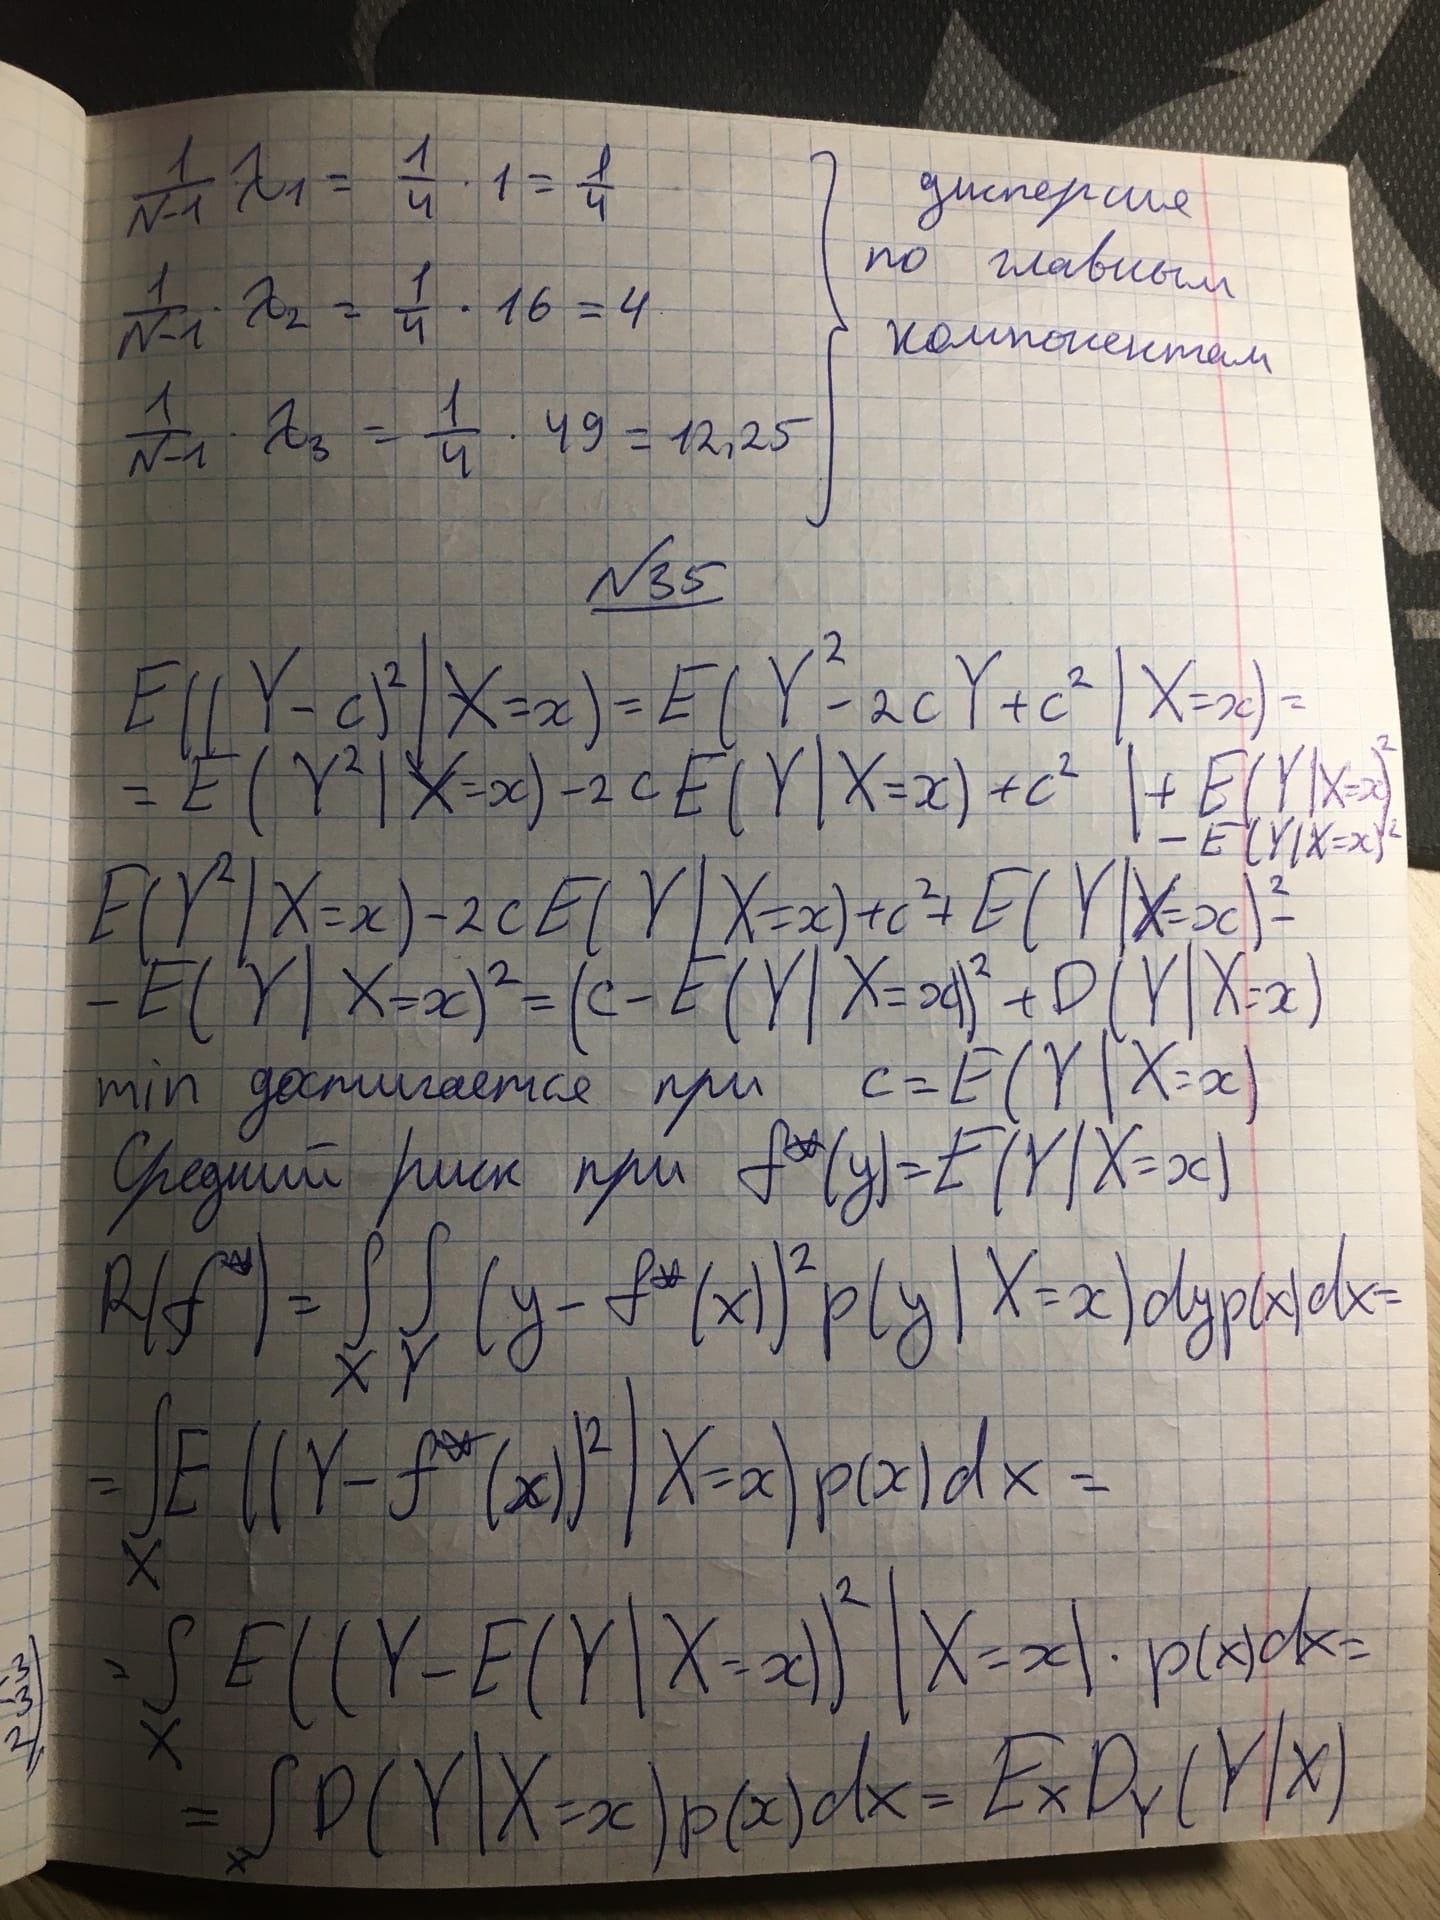 1/(N-1) λ1 = 1/4 · 1 = 1/4
1/(N-1) · λ2 = 1/4 · 16 = 4
1/(N-1) · λ3 = 1/4 · 49 = 12,25
дисперсия
по главным
компонентам
N35
E((Y-c)²|X=x) = E(Y²-2cY+c²|X=x) =
= E(Y²|X=x) -2cE(Y|X=x) +c² |+ E(Y|X=x)²
- E(Y|X=x)²
E(Y²|X=x) -2cE(Y|X=x)+c²+ E(Y|X=x)²-
-E(Y|X=x)² = (c-E(Y|X=x))² + D(Y|X=x)
min достигается при c=E(Y|X=x)
Средний риск при f*(y)=E(Y|X=x)
R(f*) = ∫X ∫Y (y-f*(x))² p(y|X=x)dyp(x)dx=
= ∫X E((Y-f*(x))²|X=x)p(x)dx =
= ∫X E((Y-E(Y|X=x))²|X=x) · p(x)dx=
= ∫x D(Y|X=x)p(x)dx = EXDY(Y|X)